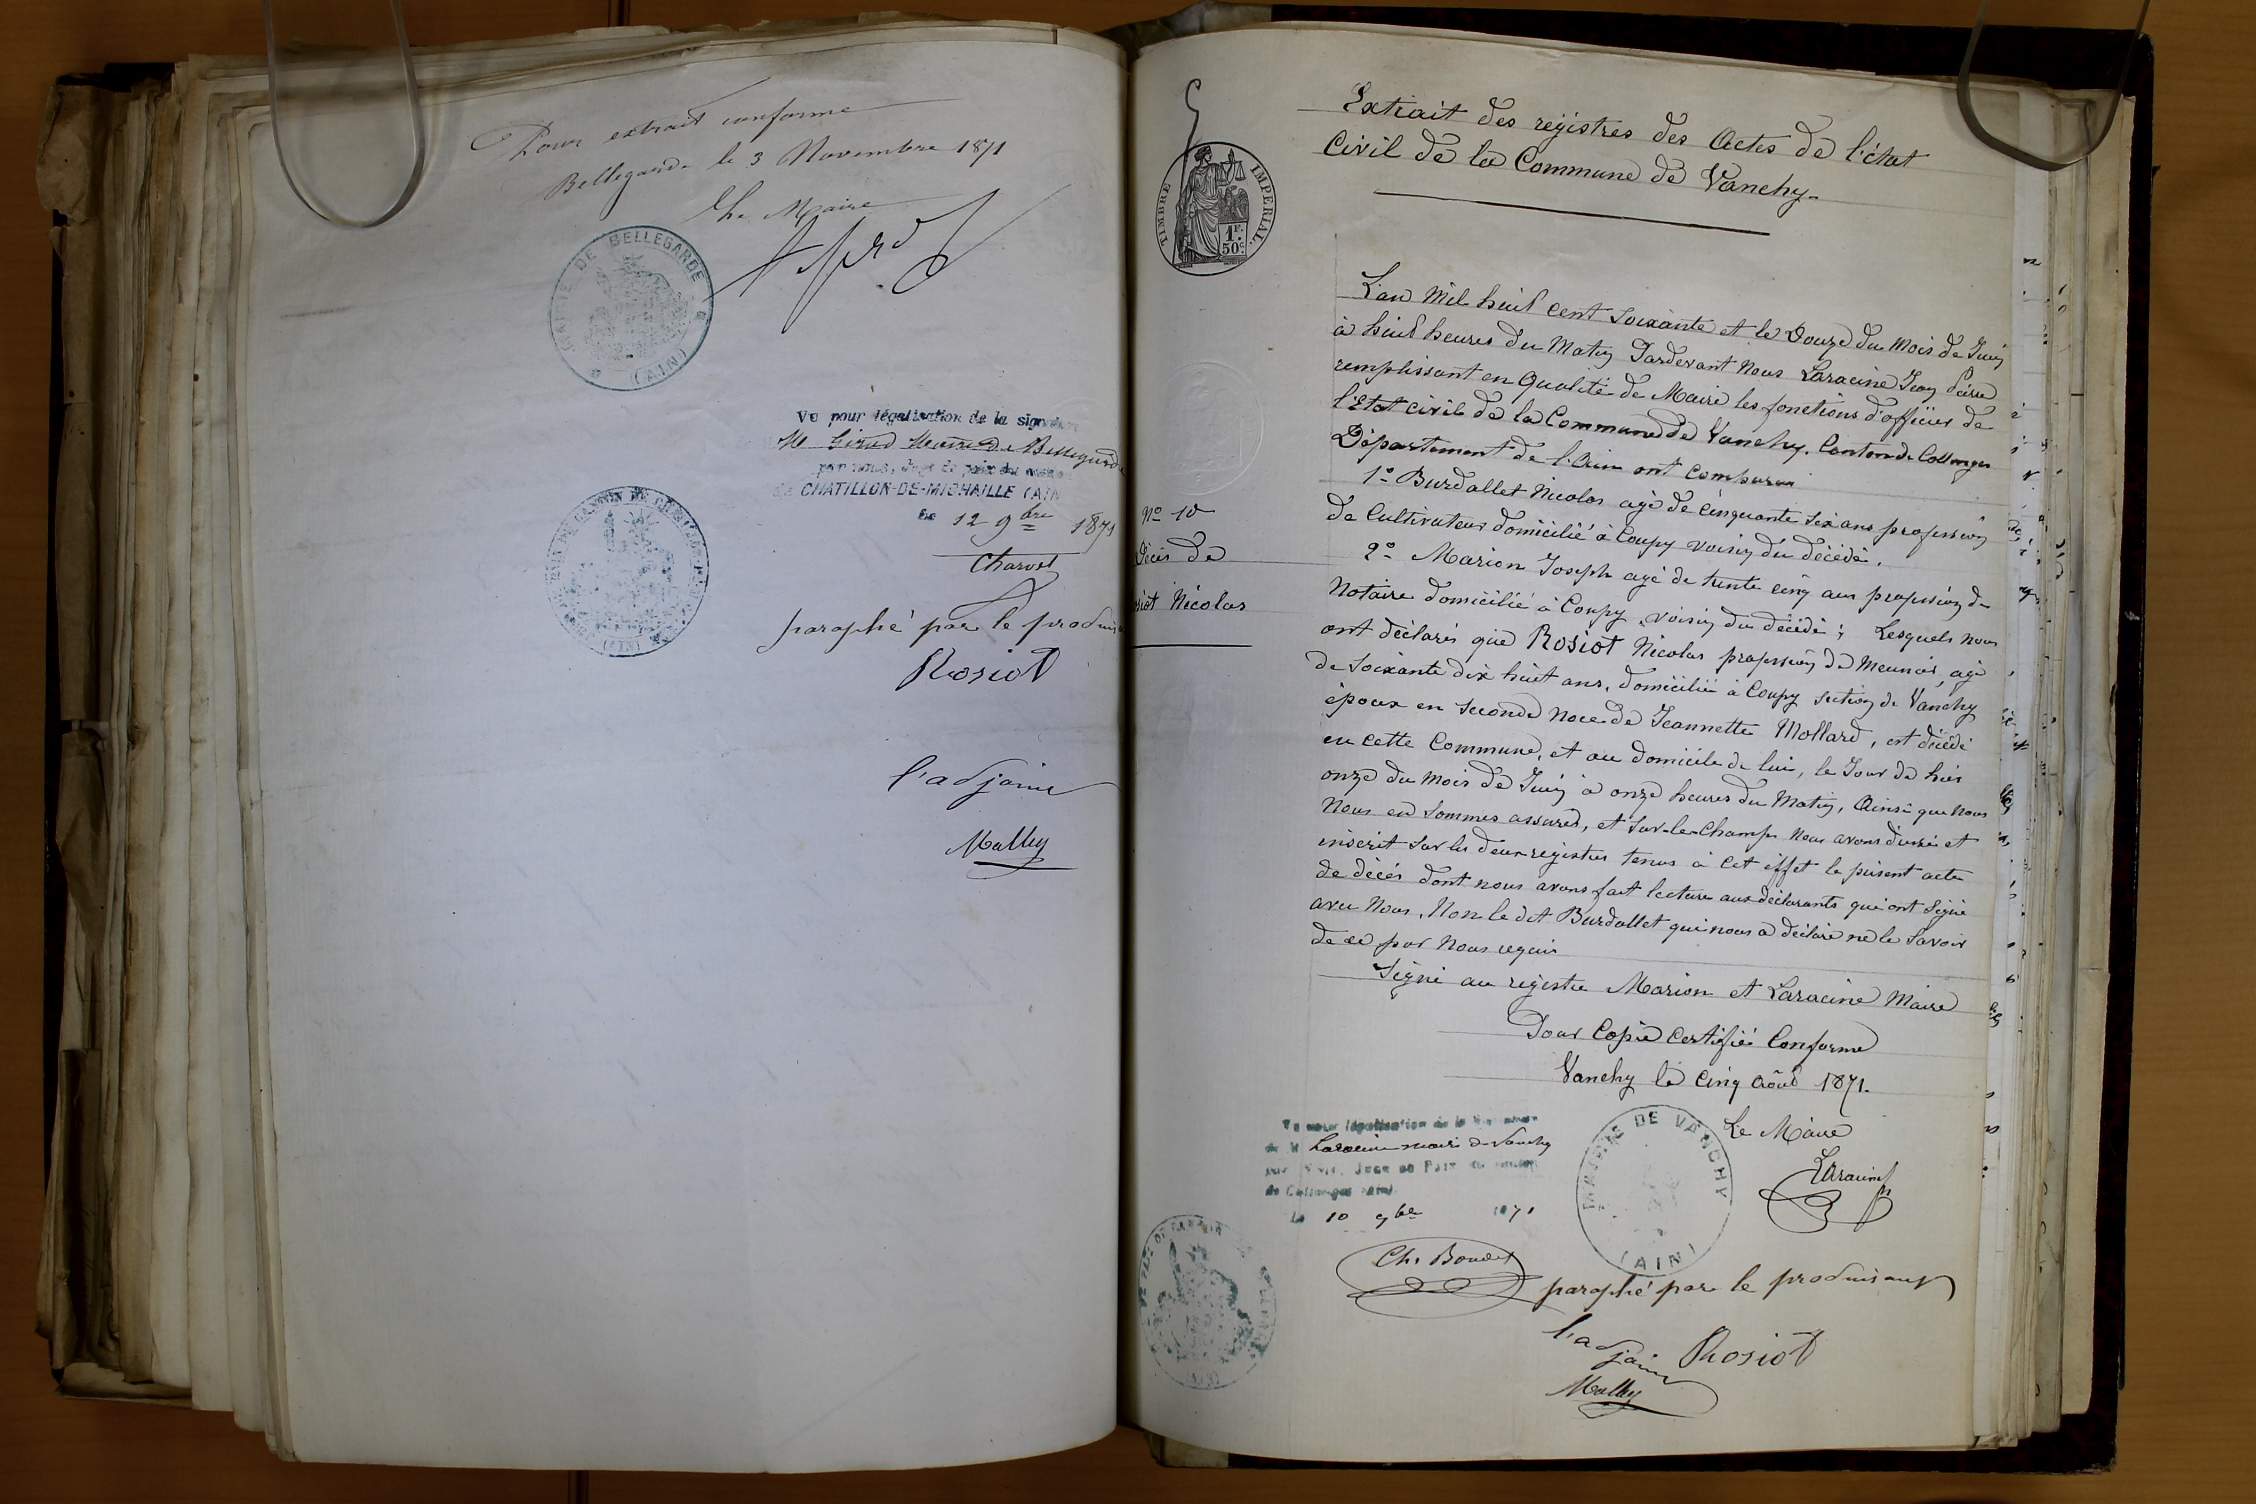 Pour extrait conforme
Bellegarde le 3 Novembre 1871
Le Maire
MAIRIE DE BELLEGARDE
(AIN)
Vu pour légalisation de la signature
M Maire de Bellegarde
par nous, Juge de paix du canton
de CHATILLON-DE-MICHAILLE (AIN
Le 12 9bre 1871
Charvet
(AIN)
paraphé par le produis
Rosiot
l'adjoint
Mathy
Extrait des registres des Actes de l'état
Civil de la Commune de Vanchy.
TIMBRE IMPERIAL.
1F.
50c.
L'an mil huit cent soixante et le Douze du mois de Juin
à huit heures du Matin Pardevant nous Laracine Jean Pierre
remplissant en qualité de Maire les fonctions d'officier de
l'Etat civil de la Commune de Vanchy, Canton de Collonges
Département de l'Ain ont comparu
1º Burdallet Nicolas agé de cinquante six ans profession
de Cultivateur domicilié à Coupy voisin du décédé.
2º Marion Joseph agé de trente cinq ans profession de
Notaire domicilié à Coupy, voisin du décédé; Lesquels nous
ont déclaré que Rosiot Nicolas profession de meunier, agé
de soixante dix huit ans, domicilié à Coupy section de Vanchy
époux en seconde noce de Jeannette Mollard, est décédé
en cette Commune, et au domicile de lui, le Jour de hier
onze du mois de Juin à onze heures du Matin, Ainsi que nous
nous en sommes assurés, et sur-le-champ nous avons dressé et
inscrit sur les deux registres tenus à cet effet le présent acte
de décés dont nous avons fait lecture aux déclarants qui ont signé
avec nous, Non le dit Burdallet qui nous a déclaré ne le savoir
de ce par nous requis
Signé au registre Marion et Laracine Maire
Pour Copie certifié Conforme
Vanchy le cinq août 1871.
Le Maire
Laracine
Nº 10
Décés de
siot Nicolas
Vu pour légalisation de la signature
de M Laracine maire de Vanchy
par nous, Juge de Paix du canton
de Collonges (Ain)
Le 10 9bre 1871
MAIRIE DE VANCHY
(AIN)
Ch. Boudet
paraphé par le produisant
l'adjoint Rosiot
Mathy